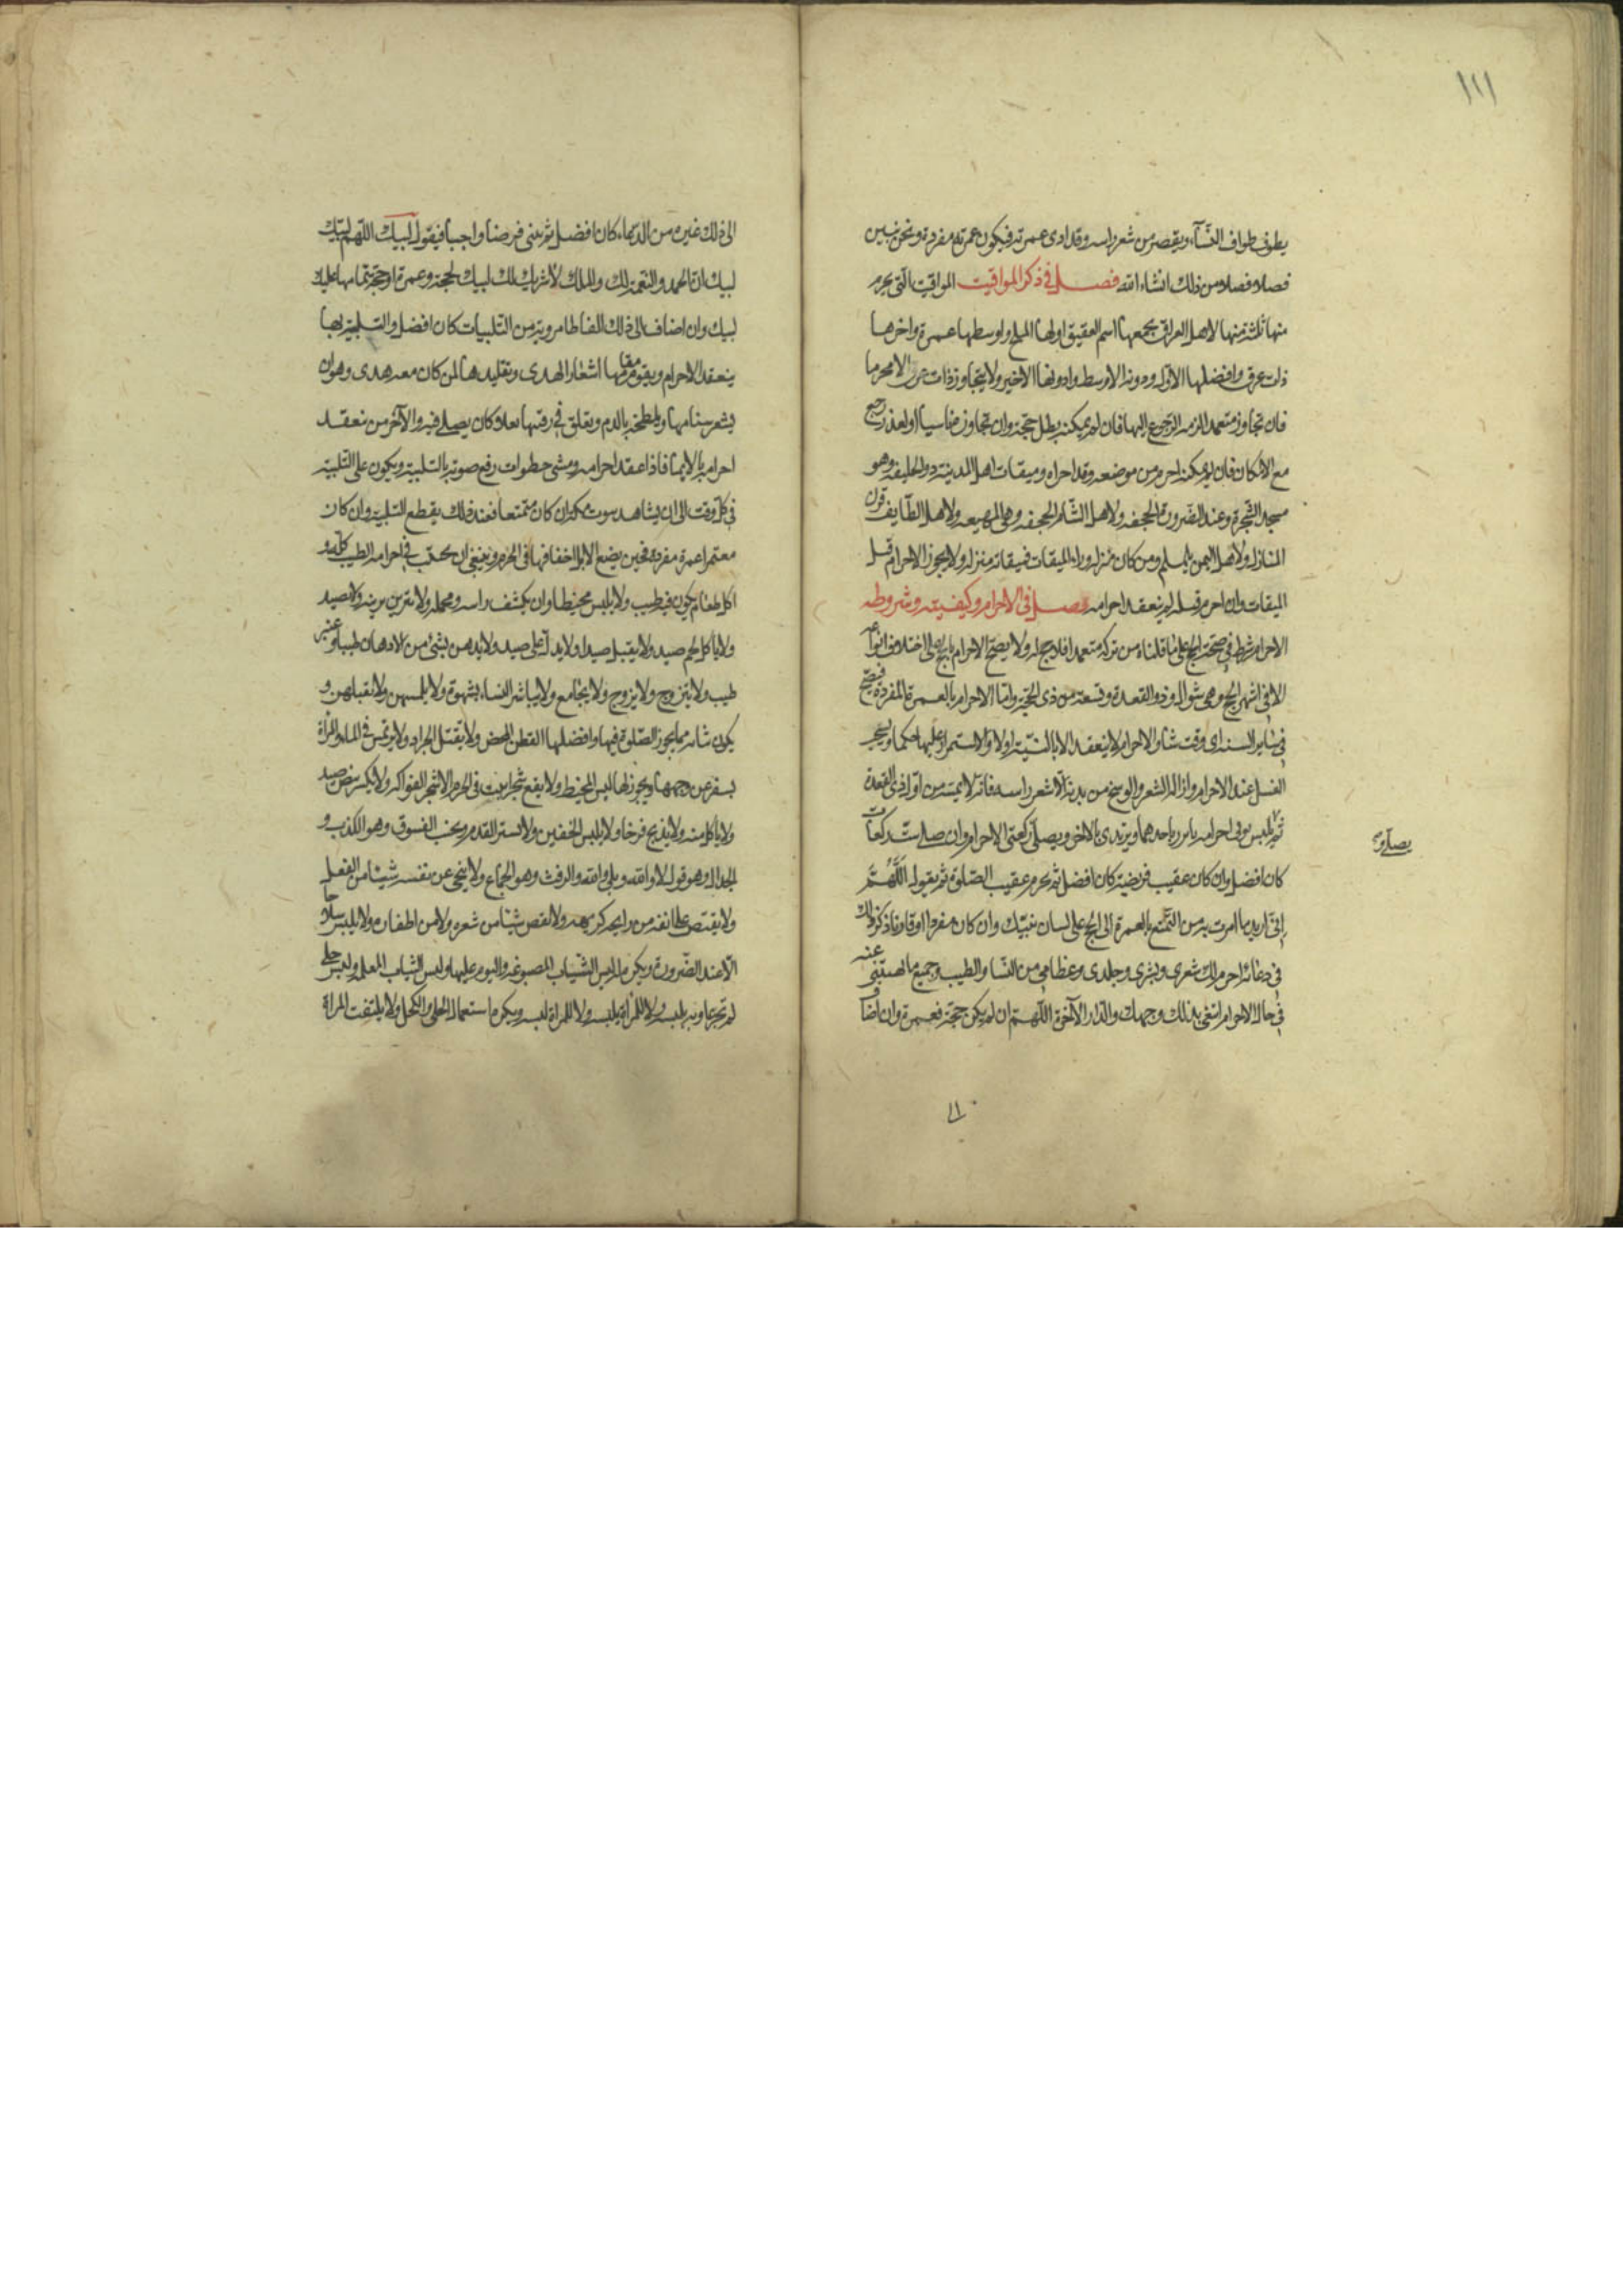 ١١١
يطوف طواف النسآء ويقصر من شعر راسه وقد ادى عمرته فيكون عمرته مفردة ونحن نبين
فصلا فصلا من ذلك انشاء الله فصل في ذكر المواقيت المواقيت التى يحرم
منها ثلثة منها لاهل العراق يجمعها اسم العقيق اولها المسلح واوسطها عمرة واخرها
ذات عرق وافضلها الاول ودونه الاوسط وادونها الاخير ولا يتجاوز ذات عرق الا محرما
فان تجاوز متعمدا لزمه الرجوع اليها فان لم يمكنه بطل حجته وان تجاوز ناسيا او لعذر رجع
مع الامكان فان لم يمكنه احرم من موضعه وقد اجزاه وميقات اهل المدينة ذو الحليفه وهو
مسجد الشجرة وعند الضرورة الجحفه ولاهل الشام الجحفه وهى المهيعه ولاهل الطايف قرن
المنازل ولاهل اليمن يلملم ومن كان منزله وراء الميقات فميقاته منزله ولا يجوز الاحرام قبل
الميقات وان احرم قبله لم ينعقد احرامه فصل فى الاحرام وكيفيته وشروطه
الاحرام شرط في صحة الحج على ما قلناه من تركه متعمدا فلا حج له ولا يصح الاحرام بالحج على اختلاف انواعه
الا في اشهر الحج وهى شوال وذو القعدة وتسعة من ذى الحجة واما الاحرام بالعمرة المفردة فيصح
في ساير السنه اى وقت شاء والاحرام لا ينعقد الا بالنية اولا والاستمرار عليها حكما ويستحب
الغسل عند الاحرام وازالة الشعر والوسخ من بدنه الا شعر راسه فانه لا يمسه من اول ذى القعدة
ثم يلبس ثوبى احرامه ياتزر باحدهما ويرتدى بالاخر ويصلى ركعتى الاحرام وان صلى ست ركعات
كان افضل وان كان عقيب فريضة كان افضل ثم يحرم عقيب الصلوة ثم يقول اللهم
إنى اريد ما امرت به من التمتع بالعمرة الى الحج على لسان نبيك وان كان مفردا او قارنا ذكر ذلك
في دعائه احرم لك شعرى وبشرى وجلدى وعظامى من النسا والطيب وجميع ما نهيتنى عنه
في حال الاحرام ابتغى بذلك وجهك والدار الآخرة اللهم ان لم يكن حجة فعمرة وان اضاف
الى ذلك غيره من الدعاء كان افضل ثم ينوى فرضا واجبا فيقول لبيك اللهم لبيك
لبيك ان الحمد والنعمة لك والملك لا شريك لك لبيك لحجة وعمرة او حجة تمامها عليك
لبيك وان اضاف الى ذلك الفاظا مروية من التلبيات كان افضل والتلبية بها
ينعقد الاحرام ويقوم مقامها اشعار الهدى وتقليدها لمن كان معه هدى وهو ان
يشعر سنامها ويلطخه بالدم ويعلق في رقبتها نعلا كان يصلى فيه والآخرس نعقد
احرامه بالايما فاذا عقد احرامه ومشى خطوات رفع صوته بالتلبية ويكون على التلبية
في كل وقت الى ان يشاهد بيوت مكه ان كان متمتعا فعند ذلك يقطع التلبية وان كان
معتمرا عمرة مفردة فحين يضع الابل اخفافها في الحرم وينبغى ان يجتنب في احرامه الطيب كله و
اكل طعام يكون فيه طيب ولا يلبس مخيطا وان يكشف راسه ومحمله ولا يتزين بزينة ولا يصيد
ولا ياكل لحم صيد ولا يقبل صيدا ولا يدل على صيد ولا يدهن بشئ من الادهان طيبا وغير
طيب ولا يتزوج ولا يزوج ولا يجامع ولا يباشر النساء بشهوة ولا يلمسهن ولا يقبلهن و
يكون ثيابه مما يجوز الصلوة فيها وافضلها القطن المحض ولا يقتل الجراد ولا يرتمس في الماء والمرأة
يسفر عن وجهها ويجوز لها لبس المخيط ولا يقع شجرا ينبت في الحرم الا شجر الفواكه ولا يكسر بيض صيد
ولا ياكل منه ولا يذبح فرخا ولا يلبس الخفين ولا ما ستر القدم ويجتنب الفسوق وهو الكذب و
الجدال وهو قول لا والله وبلى والله والرفث وهو الجماع ولا ينحى عن نفسه شيئا من القمل
ولا يقبض على انفه من رايحة كريهه ولا يقص شيئا من شعره ولا من اظفاره ولا يلبس سلاحا
الا عند الضرورة ويكره لبس الثياب المصبوغه والنوم عليها ولبس الثياب المعلم ولبس حلى
لم تجر عادته بلبسه ولا للمرأة لبسه ويكره استعمال الحلى والكحل ولا يلتفت المرأة